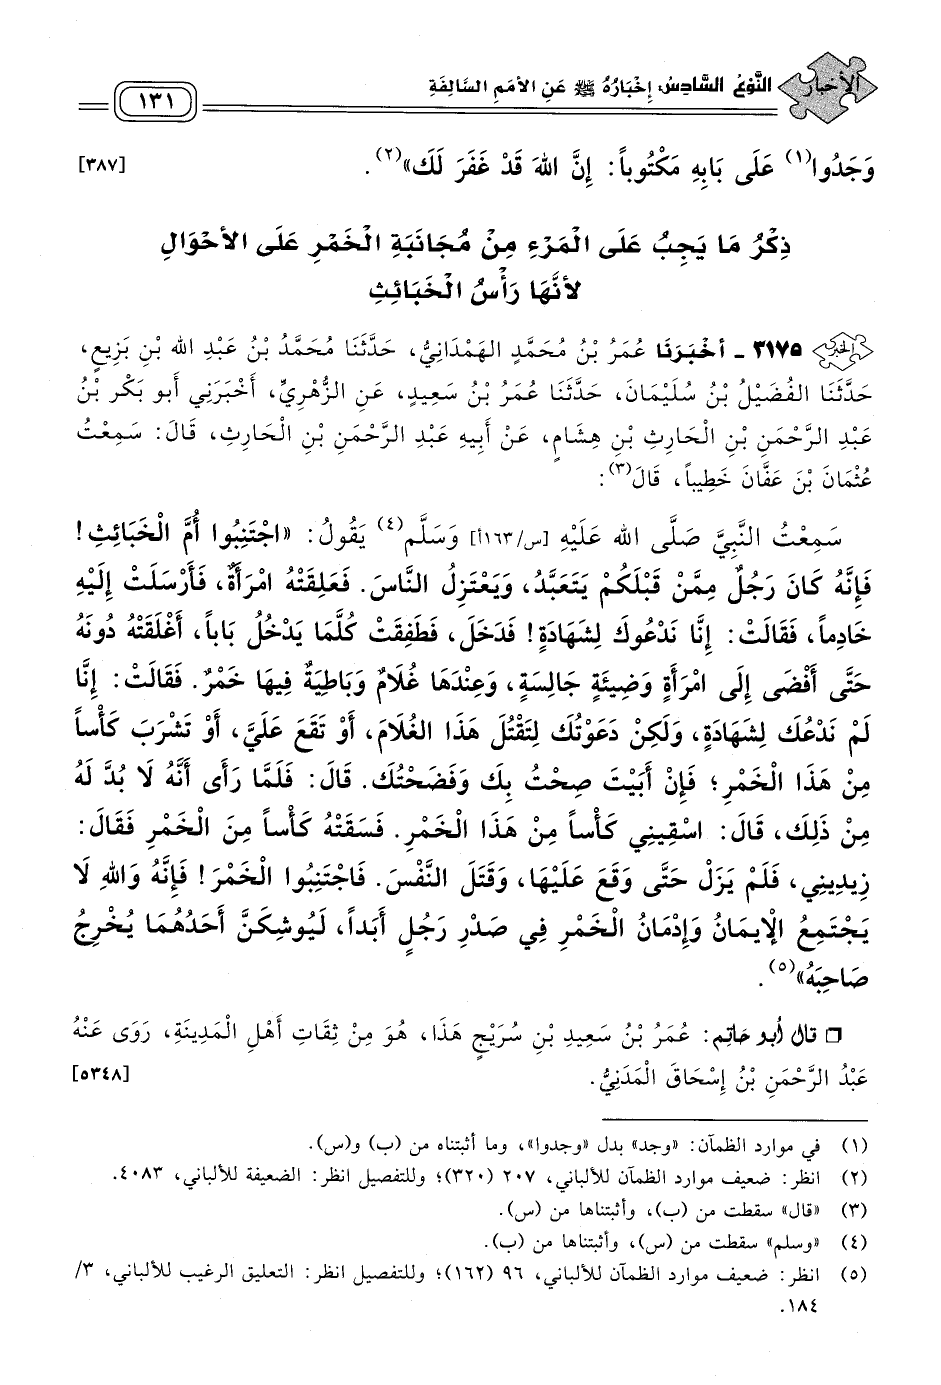 الأخبار النَّوْعُ السَّادِسُ: إِخْبَارُهُ ﷺ عَنِ الأُمَمِ السَّالِفَةِ ١٣١
وَجَدُوا(١) عَلَى بَابِهِ مَكْتُوباً: إِنَّ اللهَ قَدْ غَفَرَ لَكَ»(٢). [٣٨٧]
ذِكْرُ مَا يَجِبُ عَلَى الْمَرْءِ مِنْ مُجَانَبَةِ الْخَمْرِ عَلَى الأَحْوَالِ
لأَنَّهَا رَأْسُ الْخَبَائِثِ
٣١٧٥ - أَخْبَرَنَا عُمَرُ بْنُ مُحَمَّدٍ الهَمْدَانِيُّ، حَدَّثَنَا مُحَمَّدُ بْنُ عَبْدِ الله بْنِ بَزِيعٍ،
حَدَّثَنَا الفُضَيْلُ بْنُ سُلَيْمَانَ، حَدَّثَنَا عُمَرُ بْنُ سَعِيدٍ، عَنِ الزُّهْرِيِّ، أَخْبَرَنِي أَبو بَكْرِ بْنُ
عَبْدِ الرَّحْمَنِ بْنِ الْحَارِثِ بْنِ هِشَامٍ، عَنْ أَبِيهِ عَبْدِ الرَّحْمَنِ بْنِ الْحَارِثِ، قَالَ: سَمِعْتُ
عُثْمَانَ بْنَ عَفَّانَ خَطِيباً، قَالَ(٣):
سَمِعْتُ النَّبِيَّ صَلَّى الله عَلَيْهِ [س/١٦٣أ] وَسَلَّم(٤) يَقُولُ: «اجْتَنِبُوا أُمَّ الْخَبَائِثِ!
فَإِنَّهُ كَانَ رَجُلٌ مِمَّنْ قَبْلَكُمْ يَتَعَبَّدُ، وَيَعْتَزِلُ النَّاسَ. فَعَلِقَتْهُ امْرَأَةٌ، فَأَرْسَلَتْ إِلَيْهِ
خَادِماً، فَقَالَتْ: إِنَّا نَدْعُوكَ لِشَهَادَةٍ! فَدَخَلَ، فَطَفِقَتْ كُلَّمَا يَدْخُلُ بَاباً، أَغْلَقَتْهُ دُونَهُ
حَتَّى أَفْضَى إِلَى امْرَأَةٍ وَضِيئَةٍ جَالِسَةٍ، وَعِنْدَهَا غُلَامٌ وَبَاطِيَةٌ فِيهَا خَمْرٌ. فَقَالَتْ: إِنَّا
لَمْ نَدْعُكَ لِشَهَادَةٍ، وَلَكِنْ دَعَوْتُكَ لِتَقْتُلَ هَذَا الغُلَامَ، أَوْ تَقَعَ عَلَيَّ، أَوْ تَشْرَبَ كَأْساً
مِنْ هَذَا الْخَمْرِ؛ فَإِنْ أَبَيْتَ صِحْتُ بِكَ وَفَضَحْتُكَ. قَالَ: فَلَمَّا رَأَى أَنَّهُ لَا بُدَّ لَهُ
مِنْ ذَلِكَ، قَالَ: اسْقِينِي كَأْساً مِنْ هَذَا الْخَمْرِ. فَسَقَتْهُ كَأْساً مِنَ الْخَمْرِ فَقَالَ:
زِيدِينِي، فَلَمْ يَزَلْ حَتَّى وَقَعَ عَلَيْهَا، وَقَتَلَ النَّفْسَ. فَاجْتَنِبُوا الْخَمْرَ! فَإِنَّهُ وَاللهِ لَا
يَجْتَمِعُ الْإِيمَانُ وَإِدْمَانُ الْخَمْرِ فِي صَدْرِ رَجُلٍ أَبَداً، لَيُوشِكَنَّ أَحَدُهُمَا يُخْرِجُ
صَاحِبَهُ»(٥).
❑ قال أبو حاتِم: عُمَرُ بْنُ سَعِيدِ بْنِ سُرَيْجٍ هَذَا، هُوَ مِنْ ثِقَاتِ أَهْلِ الْمَدِينَةِ، رَوَى عَنْهُ
عَبْدُ الرَّحْمَنِ بْنُ إِسْحَاقَ الْمَدَنِيُّ. [٥٣٤٨]
(١) في موارد الظمآن: «وجد» بدل «وجدوا»، وما أثبتناه من (ب) و(س).
(٢) انظر: ضعيف موارد الظمآن للألباني، ٢٠٧ (٣٢٠)؛ وللتفصيل انظر: الضعيفة للألباني، ٤٠٨٣.
(٣) «قال» سقطت من (ب)، وأثبتناها من (س).
(٤) «وسلم» سقطت من (س)، وأثبتناها من (ب).
(٥) انظر: ضعيف موارد الظمآن للألباني، ٩٦ (١٦٢)؛ وللتفصيل انظر: التعليق الرغيب للألباني، ٣/
١٨٤.